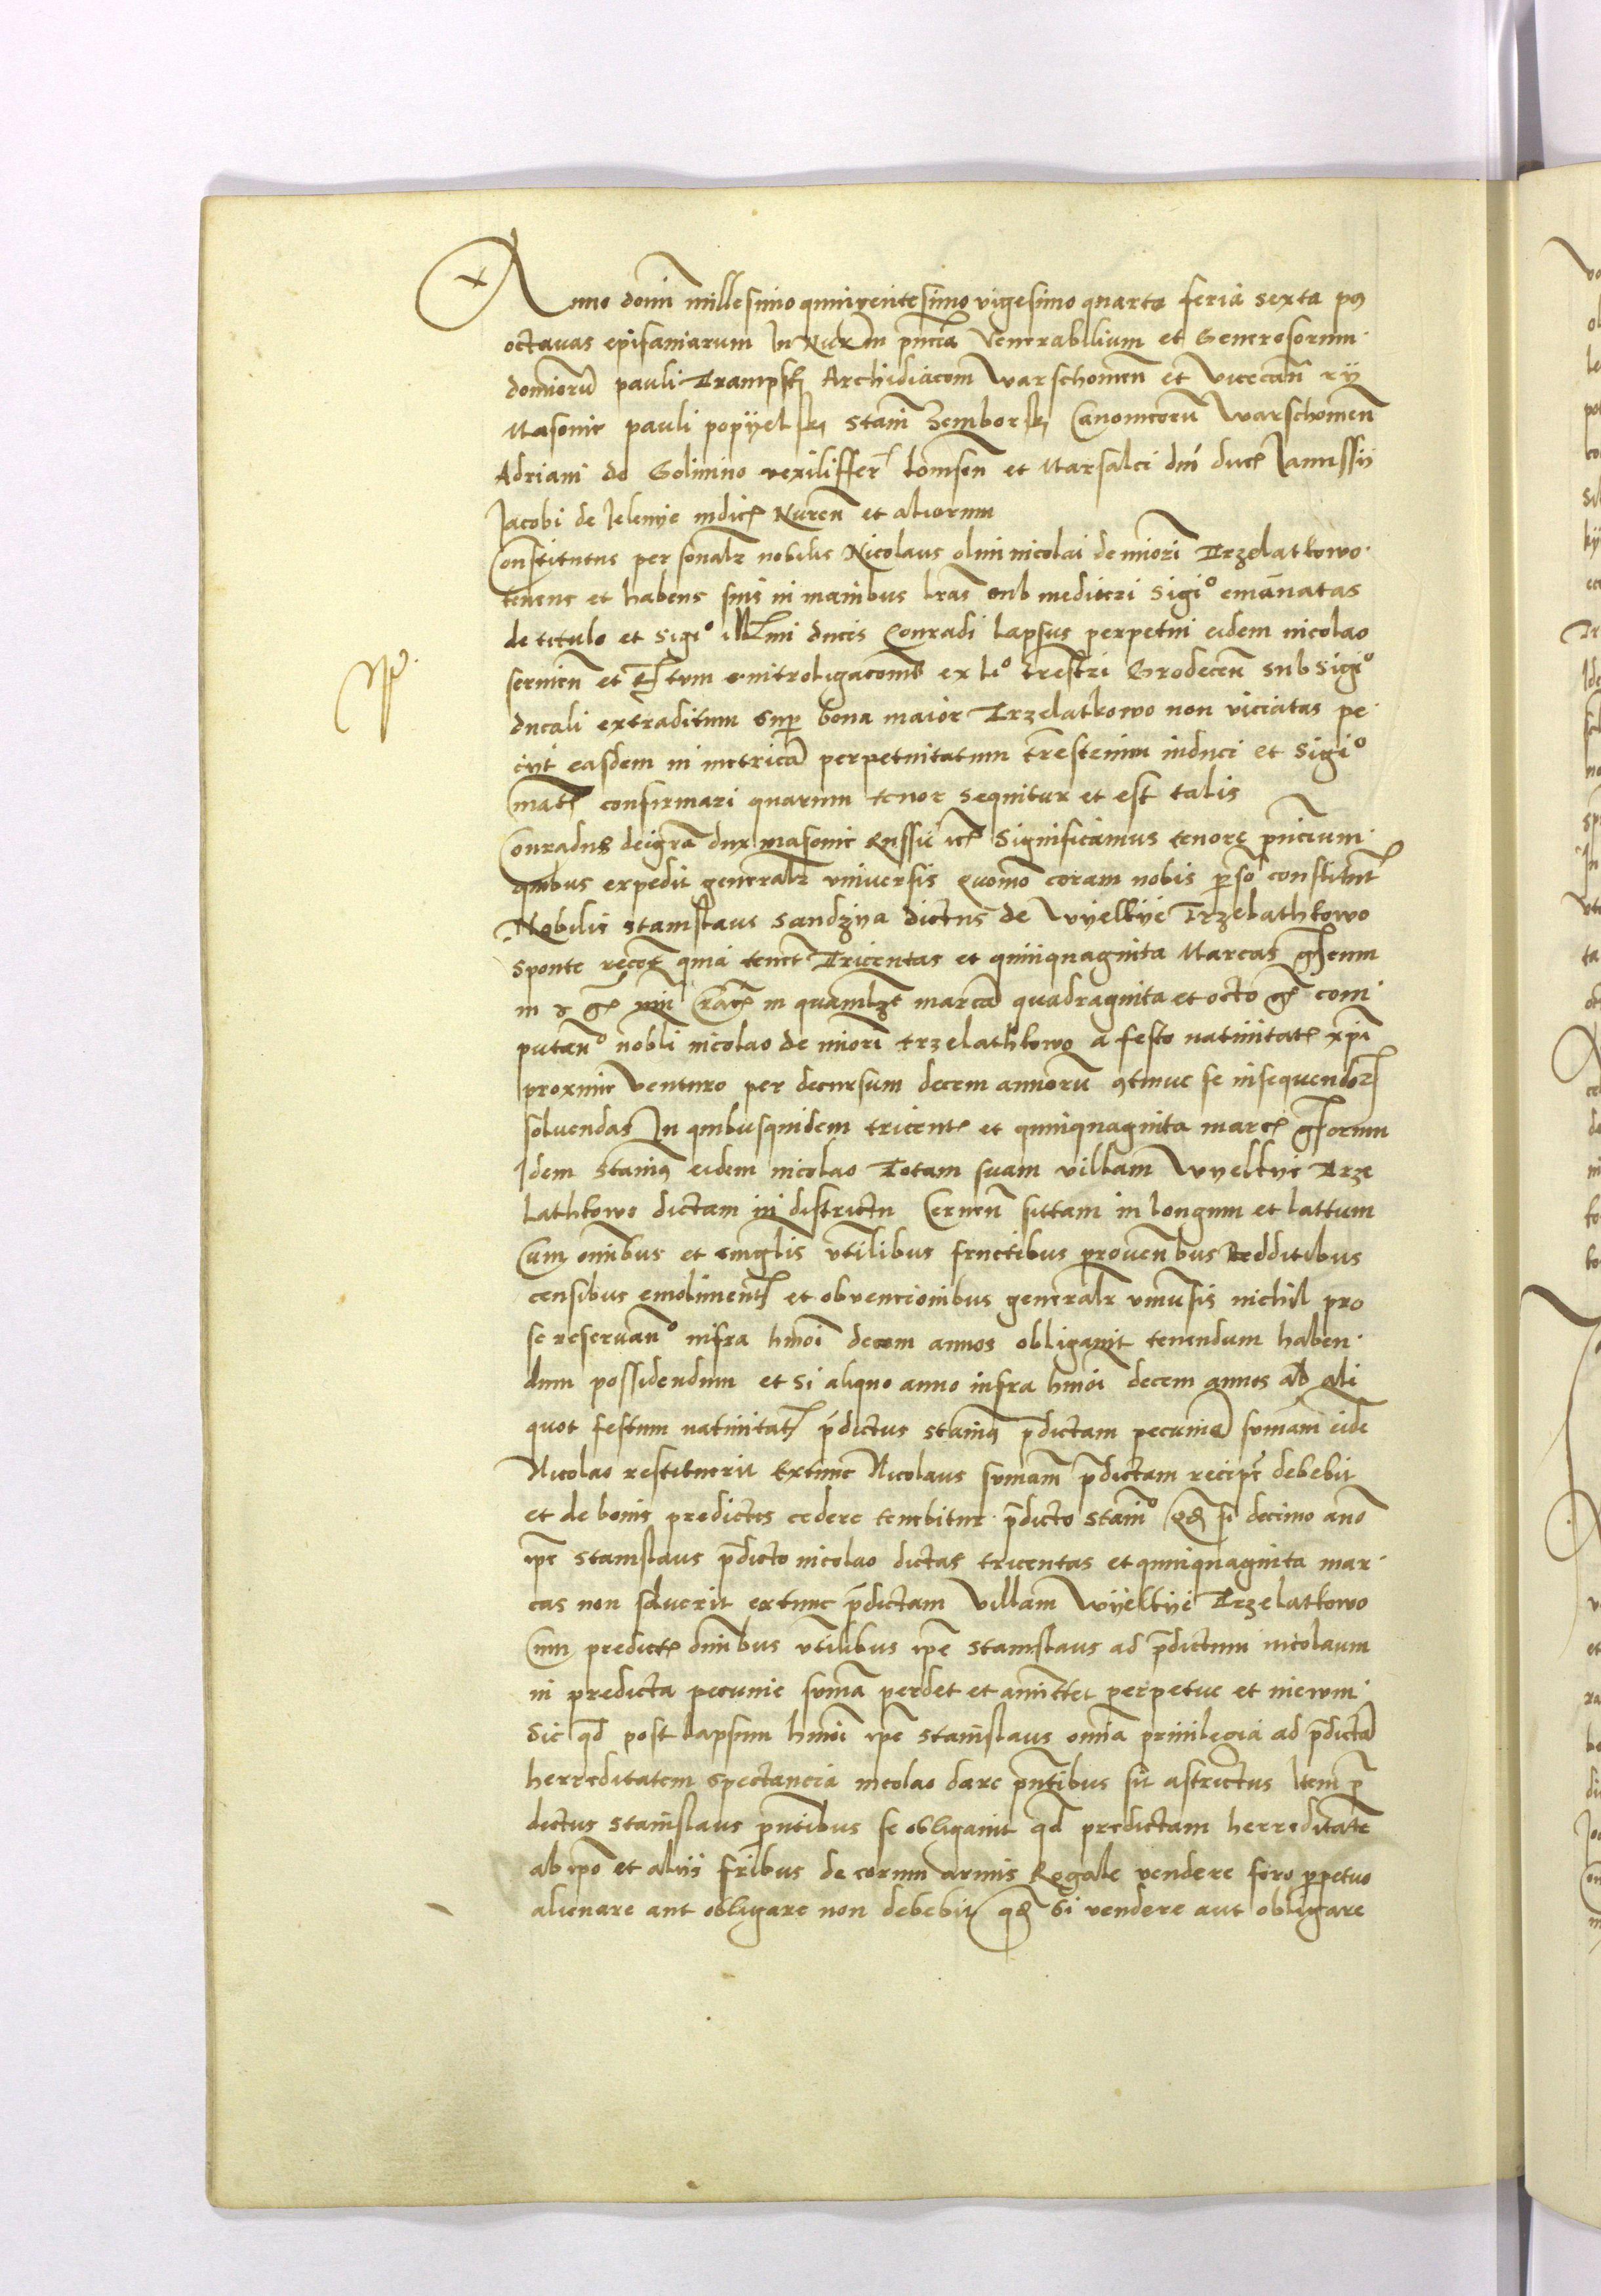 Anno domi millesimo quingentesimo vigesimo quarto feria sexta pꝯ
octavas epifaniarum In Nur In pn̄cia Venerabilium et Generosorum
dominorū pauli Trampsky Archidiaconi Warschouien̄ et Vicecan̄ rÿ
Masouie pauli popÿelsky Stani Zemborsky Canonicorū Warschouien̄
Adriani de Golimino vexilliffer lomsen̄ et Marsalci dn̄i ducꝭ Janussÿ
Jacobi de Jelenÿe indicꝭ Nuren̄ et aliorum
Constitutus personalr nobilis Nicolaus olim nicolai de minori Trzelatkowo
tenens et habens suis in manibus lr̄as sub mediocri Sigio emanatas
de titulo et Sigio illmi ducis Conradi lapsus perpetui eidem nicolao
seruien̄ et introligacionis ex lio trestri Grodecen̄ sub Sigio
ducali extraditum sup bona maior Trzelatkowo non viciatas pe
cÿt easdem in metricā perpetuitatum induci et Sigio
confirmari quarum tenor sequitur et est talis
Conradus deigrā dux masouie Russie Significamus tenore pn̄cium
quibus expedit generalr vniuersis Quomō coram nobis constitut
Nobilis Stanislaus Sandzÿa dictus de Wÿelkÿe Trzelathkowo
sponte quia tenet Tricentas et quinquaginta Marcas
in quamlibet marcā quadraginta et octo gꝭ com
putan̄o nobli nicolao de minori trzelathkowo a festo natiuitatꝭ xpī
proxime venturo per decursum decem annorū ꝯtinue se insequendorꝭ
soluendas In quibusquidem tricentꝭ et quinquaginta marcꝭ
Idem Stanisꝯ eidem nicolao Totam suam villam Wÿelkÿe Trze
lathkowo dictam in districtu sittam in longum et lattum
Cum omnibus et singlis vtilibus fructibus prouenbus Redditibus
censibus emolimentꝭ et obvencionibus generalr vniusis nichil pro
se reservan̄o infra hmōi decem annos obligauit tenendum haben
dum possidendum et Si aliquo anno infra hmōi decem annos ab ali
quot festum natiuitatꝭ p̄dictus Stanisꝯ p̄dictam pecunie sum̄am eide
Nicolao restituerit Extunc Nicolaus sum̄am p̄dictam recipe debebit
et de bonis predictis cedere tenebitur p̄dicto Stanio Qd si decimo ano
ipe Stanislaus p̄dicto nicolao dictas tricentas et quinquaginta mar
cas non soluerit extunc p̄dictam Villam Wÿelkÿe Trzelatkowo
Cum predictꝭ omibus vtilibus ipe Stanislaus ad p̄dictum nicolaum
in predicta pecunie sum̄a perdet et amittet perpetue et in ewm
Sic qd post lapsum hmōi ipe Stanislaus omia priuilegia ad p̄dictā
herreditatem spectancia nicolao dare pn̄tibus sit astrictus Item p̄
dictus Stanislaus pn̄tibus se obligauit qd predictam herreditatē
ab ipo et aliis frībus de eorum armis Rogale vendere foro ppetuo
alienare aut obligare non debebit qd Si vendere aut obligare